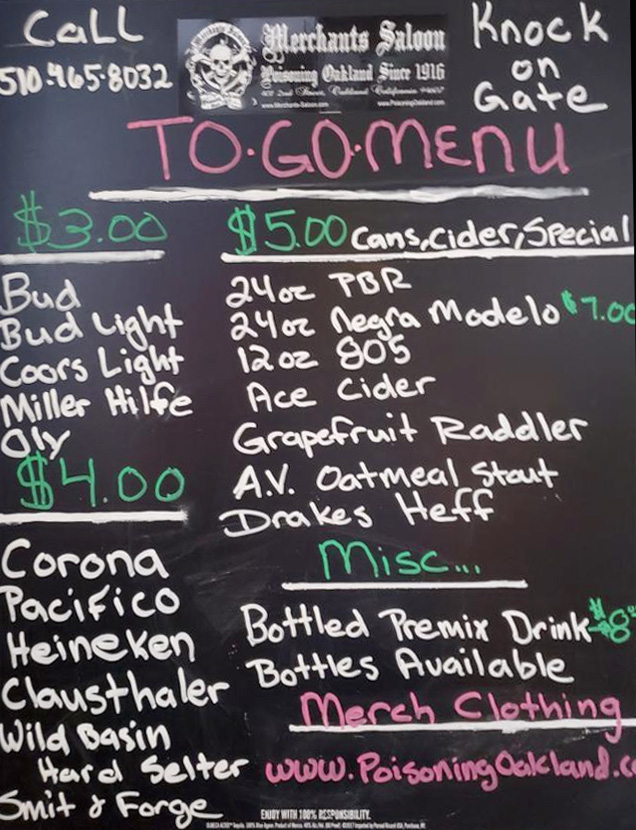 Call
510.465.8032
Merchants Saloon
Poisoning Oakland Since 1916
401 2nd Street, Oakland California 94607
www.Merchants-Saloon.com
www.PoisoningOakland.com
Knock
on
Gate
TO·GO·MENU
$3.00
Bud
Bud Light
Coors Light
Miller Hilfe
Oly
$4.00
Corona
Pacifico
Heineken
Clausthaler
Wild Basin
Hard Selter
Smit & Forge
$5.00 Cans, Cider, Special
24oz PBR
24oz Negra Modelo $7.00
12oz 805
Ace Cider
Grapefruit Raddler
A.V. Oatmeal Stout
Drakes Heff
Misc...
Bottled Premix Drink $8
Bottles Available
Merch Clothing
www.PoisoningOakland.co
ENJOY WITH 100% RESPONSIBILITY.